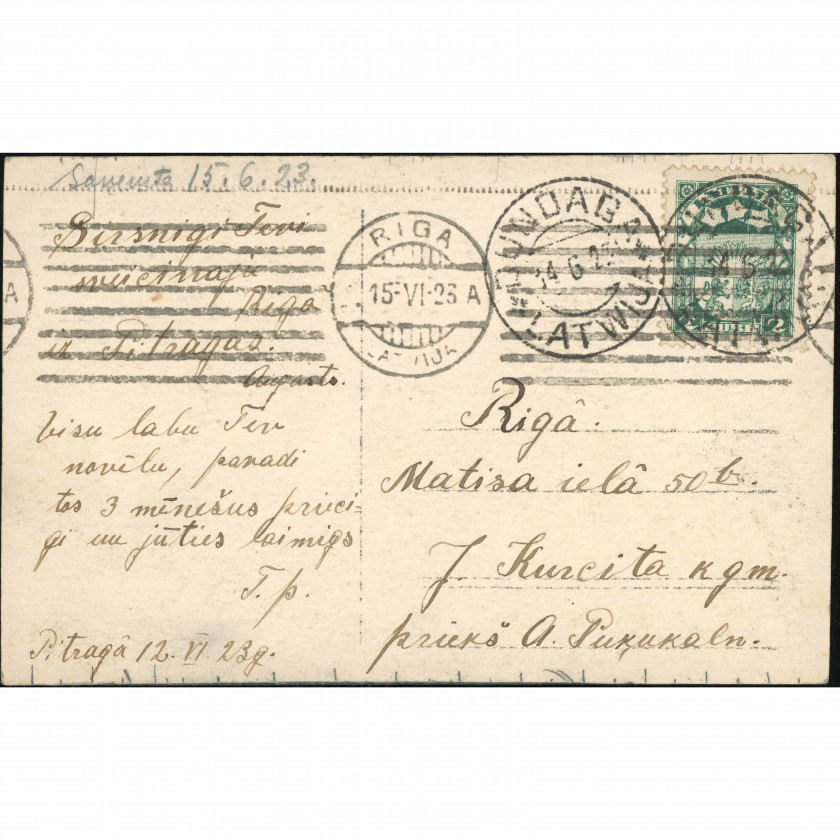 Saņemta 15.6.23.
Sirsnīgi Tevi
sveicinaju
Riga
iz Pitragas.
Augusts.
Visu labu Tev
novēlu, pavadi
tos 3 mēnešus prieci-
gi un jūties laimigs
T. p.
Pitragâ 12. VI. 23g.
RIGA
15-VI-23 A
LATVIJA
DUNDAGA
14 6 23
LATWIJA
2 2
Rigâ.
Matisa ielâ 50 b.
J. Kurcita kgm.
priekš A. Puķukaln.